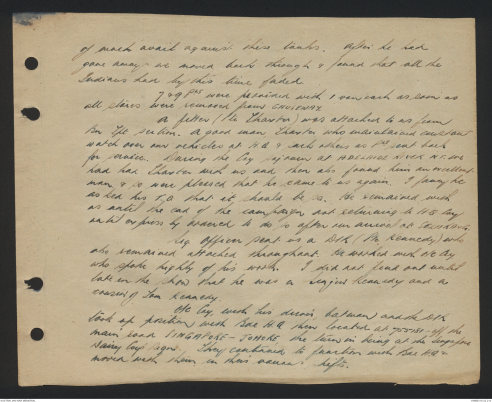 of much avail against these tanks. After he had
gone away we moved back through & found that all the
Indians had by this time faded.
7 & 9 Pns were provided with 1 van each as soon as
all stores were removed from CAUSEWAY.
A fitter (Pte Thurston) was attached to us from
Bn Tpt Section. A good man Thurston who maintained constant
watch over our vehicles at H.Q & such others as Pns sent back
for service. During the Coy sojourn at ADELAIDE RIVER N.T. we
had had Thurston with us and then also found him an excellent
man, & so were pleased that he came to us again. I fancy he
asked his T.O that it should be so. He remained with
us until the end of the campaign not returning to HQ Coy
until expressly ordered to do so after our arrival at
Sig Officer sent us a D/R (Pte Kennedy) who
also remained attached throughout. He worked with HQ Coy
who spoke highly of his work. I did not find out until
late in the show that he was a Kennedy and a
cousin of Tom Kennedy.
The Coy, with his driver batman and the D/R
took up position with Bde H.Q then located at 755180 - off the
main road SINGAPORE - JOHORE the turn in being at the Singapore
Dairy Coy's sign. They continued to function with Bde HQ &
moved with them in their various shifts.